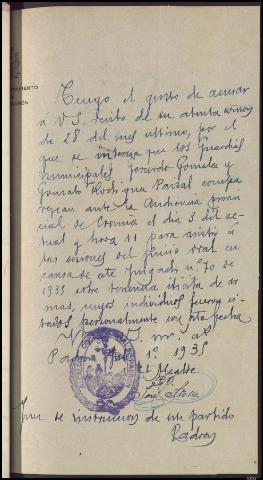 Tengo el gusto de acusar
a V S. recibo de su atenta
de 28 del mes ultimo, por el
que se interesa que los Guardias
municipales Gerardo Gonzalez y
Gonzalo Rodriguez Parzal compa
rezcan ante la Audiencia provin
cial de Coruña el dia 3 del ac-
tual y hora 11 para asistir a
las sesiones del juicio oral en
causa de este Juzgado nº 70 de
1935 sobre tenencia ilicita de ar
mas, cuyos individuos fueron ci-
tados personalmente en esta fecha
Padron 1º 1935
El Alcalde
Juez de instruccion de este partido
Padron